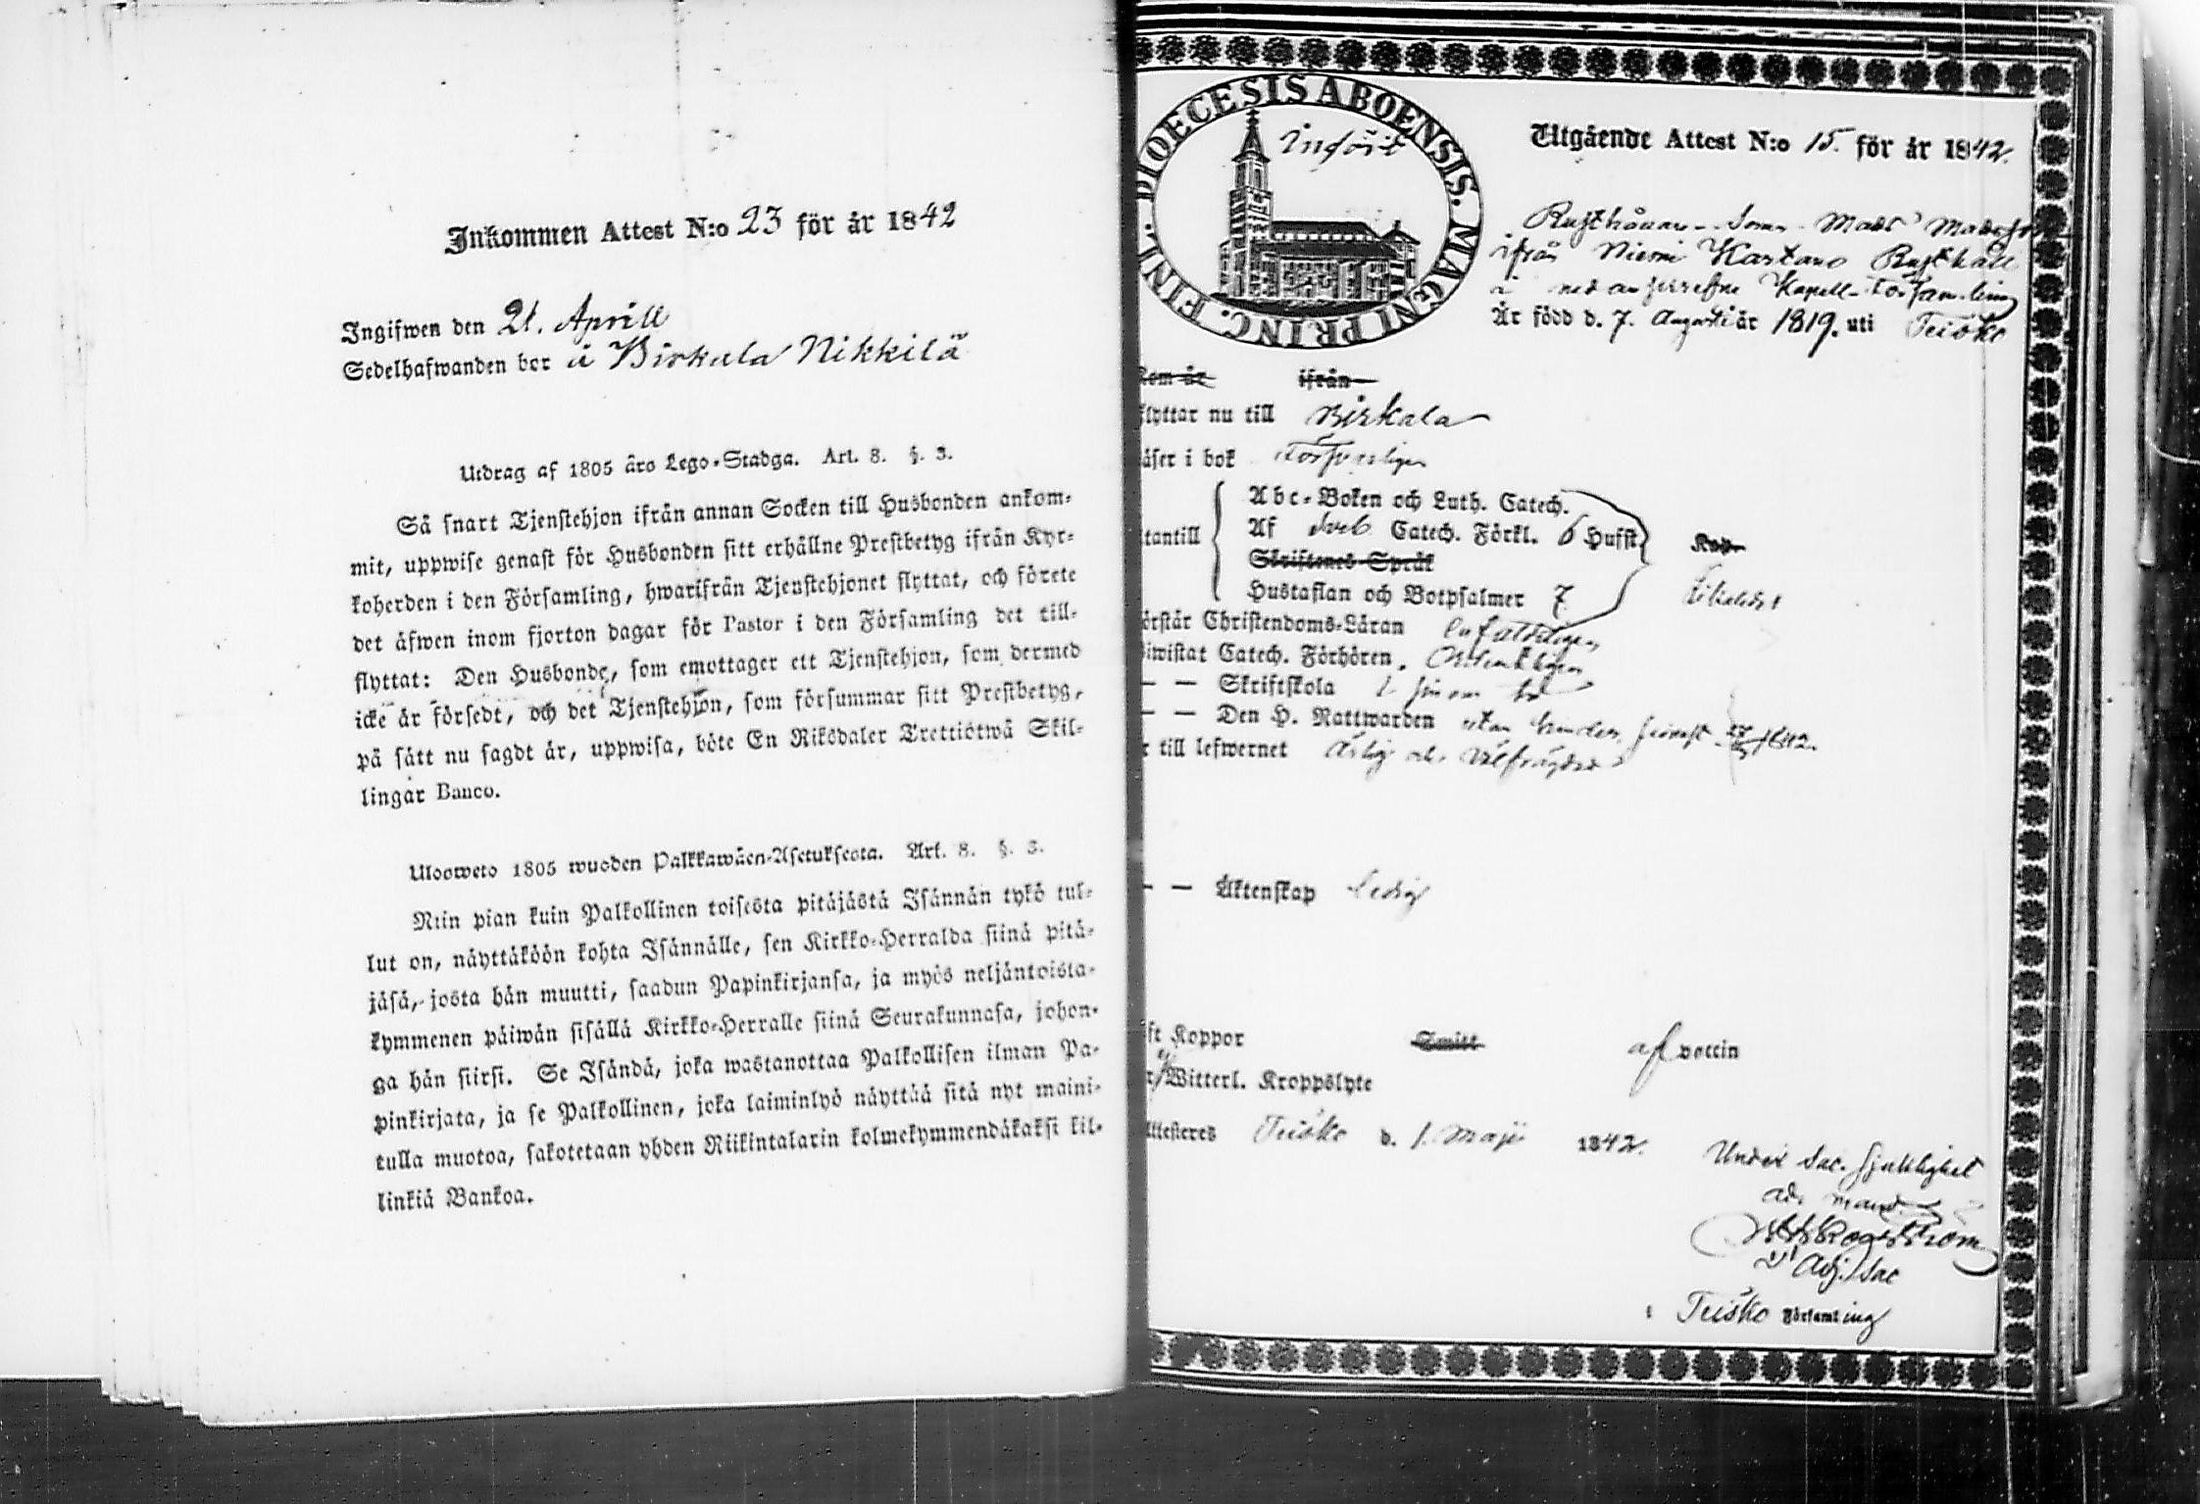 Inkommen Attest N:o 23 för år 1842
Ingifwen den 21. Aprill
Sedelhafwanden bor å Birkala Nikkilä
Utdrag af 1805 års Lego-Stadga. Art. 8. §. 3.
Så snart Tjenstehjon ifrån annan Socken till Husbonden ankom-
mit, uppwise genast för Husbonden sitt erhållne Prestbetyg ifrån Kyr-
koherden i den Församling, hwarifrån Tjenstehjonet flyttat, och förete
det äfwen inom fjorton dagar för Pastor i den Församling det till-
flyttat: Den Husbonde, som emottager ett Tjenstehjon, som dermed
icke är försedt, och det Tjenstehjon, som försummar sitt Prestbetyg,
på sätt nu sagdt är, uppwisa, böte En Riksdaler Trettiotwå Skil-
lingar Banco.
Ulosweto 1805 wuoden Palkkawäen-Asetuksesta. Art. 8. §. 3.
Niin pian kuin Palkollinen toisesta pitäjästä Isännän tykö tul-
lut on, näyttäköön kohta Isännälle, sen Kirkko-Herralda siinä pitä-
jäsä, josta hän muutti, saadun Papinkirjansa, ja myös neljäntoista-
kymmenen päiwän sisällä Kirkko-Herralle siinä Seurakunnasa, johon-
ga hän siirsi. Se Isändä, joka wastanottaa Palkollisen ilman Pa-
pinkirjata, ja se Palkollinen, joka laiminlyö näyttää sitä nyt maini-
tulla muotoa, sakotetaan yhden Riikintalarin kolmekymmendäkaksi kil-
linkiä Bankoa.
DIOECESIS ABOENSIS. MAGNI PRINC. FINL.
Infört
Utgående Attest N:o 15 för år 1842.
Rusthållare-Sonen Mats Matsson
ifrån Niemi Kartano Rusthåll
i nedanskrefne Kapell-Församling
Är född d. 7. Augusti år 1819. uti Teisko
Kom år ifrån
flyttar nu till Birkala
läser i bok Försvarligen
Abc-Boken och Luth. Catech.
utantill Af Sveb Catech. Förkl. 6 Hufst
Skriftenes Språk
Hustaflan och Botpsalmer 7
förstår Christendoms-Läran enfaldeligen
biwistat Catech. Förhören. Ordenteligen
— — Skriftskola
— — Den H. Nattwarden utan hinder, senast 1842.
r till lefwernet Ärlig och Välfrägdad
— — Äktenskap ledig
ft Koppor Smitt af vaccin
Witterl. Kroppslyte
Attesteres Teisko d. 1. Maji 1842.
Under Sac. sjuklighet
ad. mand.
Adj. Sac
i Teisko Församling